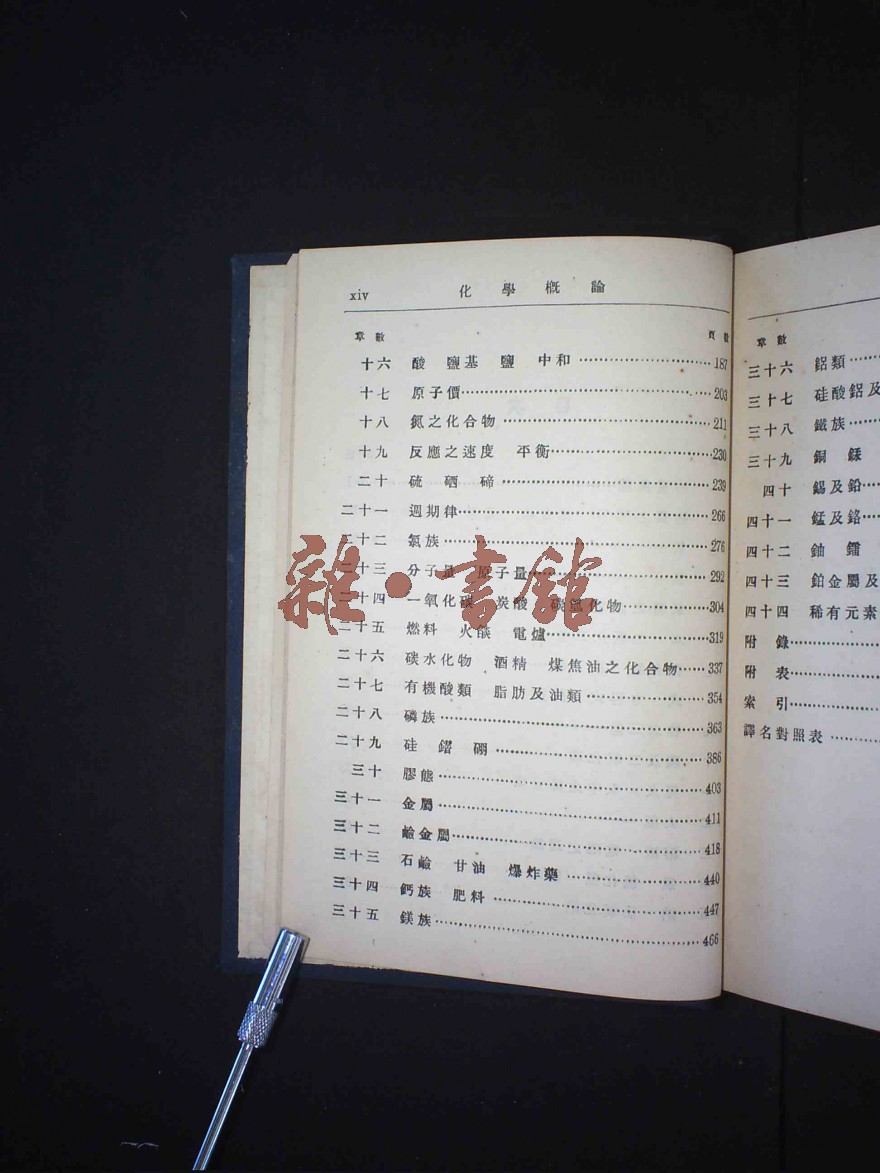 xiv 化學概論
章數 頁數
十六 酸 鹽基 鹽 中和 187
十七 原子價 203
十八 氮之化合物 211
十九 反應之速度 平衡 230
二十 硫 硒 碲 239
二十一 週期律 266
二十二 氮族 276
二十三 分子量 原子量 292
二十四 一氧化碳 炭酸 碳氫化物 304
二十五 燃料 火燄 電爐 319
二十六 碳水化物 酒精 煤焦油之化合物 337
二十七 有機酸類 脂肪及油類 354
二十八 磷族 363
二十九 硅 鍺 硼 386
三十 膠態 403
三十一 金屬 411
三十二 鹼金屬 418
三十三 石鹼 甘油 爆炸藥 440
三十四 鈣族 肥料 447
三十五 鎂族 466
雜·書館
章數
三十六 鋁類
三十七 硅酸鋁及
三十八 鐵族
三十九 銅 銾
四十 錫及鉛
四十一 錳及鉻
四十二 鈾 鐳
四十三 鉑金屬及
四十四 稀有元素
附錄
附表
索引
譯名對照表